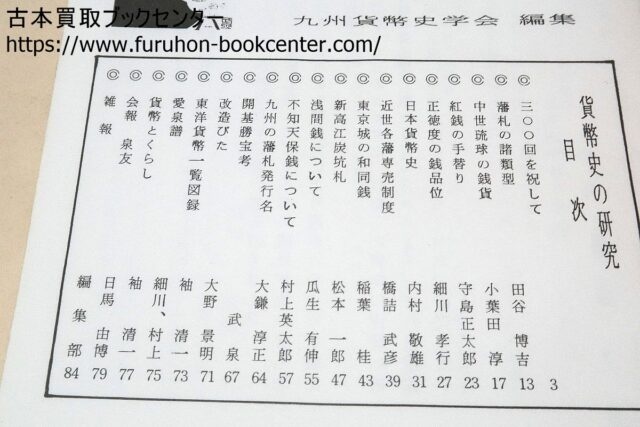 古本買取ブックセンター
https://www.furuhon-bookcenter.com/
九州貨幣史学会 編集
貨幣史の研究
目次
◎ 三〇〇回を祝して 3
◎ 藩札の諸類型 田谷 博吉 13
◎ 中世琉球の銭貨 小葉田 淳 17
◎ 紅銭の手替り 守島正太郎 23
◎ 正徳度の銭品位 細川 孝行 27
◎ 日本貨幣史 内村 敬雄 31
◎ 近世各藩専売制度 橋詰 武彦 39
◎ 東京城の和同銭 稲葉 桂 43
◎ 新高江炭坑札 松本 一郎 47
◎ 浅間銭について 瓜生 有伸 55
◎ 不知天保銭について 村上英太郎 57
◎ 九州の藩札発行名 大鎌 淳正 64
◎ 開基勝宝考 武 泉 67
◎ 改造びた 大野 景明 71
◎ 東洋貨幣一覧図録 袖 清一 73
◎ 愛泉譜 細川、村上 75
◎ 貨幣とくらし 袖 清一 77
◎ 会報 泉友 日馬 由博 79
◎ 雑報 編集部 84